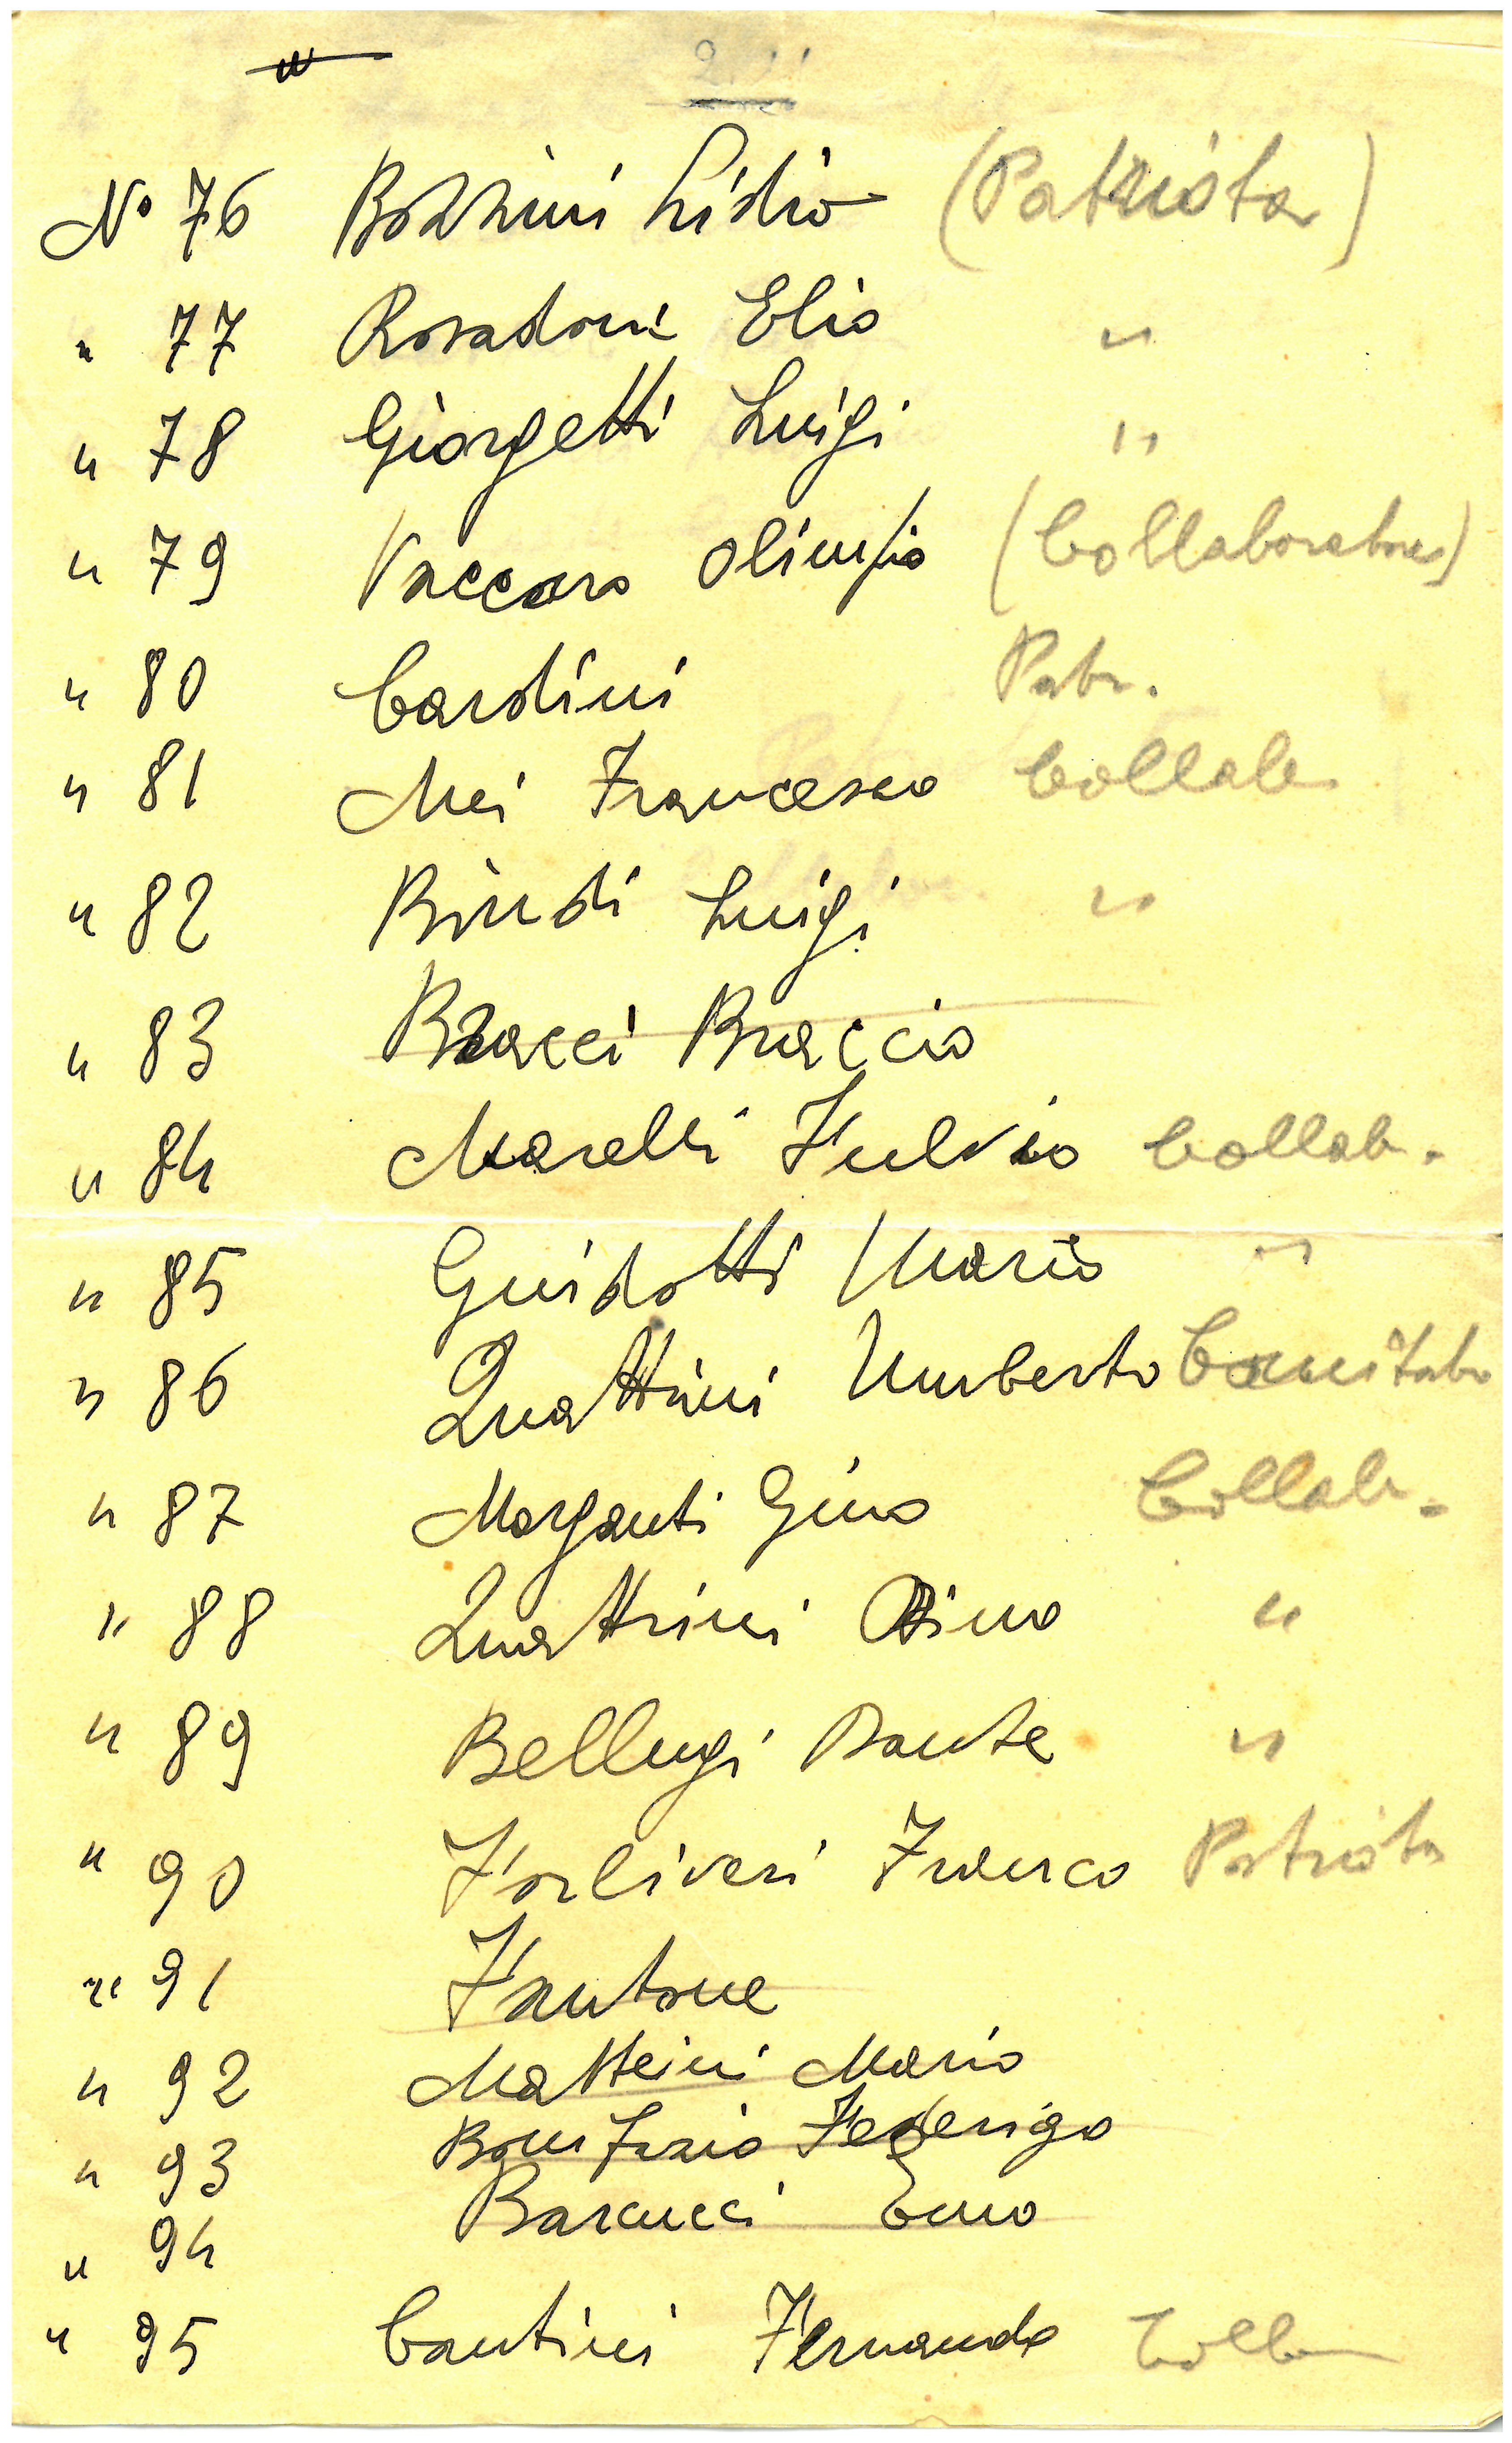 No 76 Bozzini Lidio (Patriota)
" 77 Rosadoni Elio "
" 78 Giorgetti Luigi "
" 79 Vaccaro Olimpio (Collaboratore)
" 80 Cardini Patr.
" 81 Mei Francesco Collab
" 82 Bindi Luigi "
" 83 Bracci Braccio
" 84 Marelli Fulvio Collab.
" 85 Guidotti Mario "
" 86 Quattrini Umberto Comitato
" 87 Morganti Gino Collab.
" 88 Quattrini Dino "
" 89 Bellugi Dante "
" 90 Forliveri Franco Patriota
" 91 Fantone
" 92 Matteini Mario
" 93 Bonifazio Federigo
" 94 Barcucci Emo
" 95 Cantini Fernando Coll